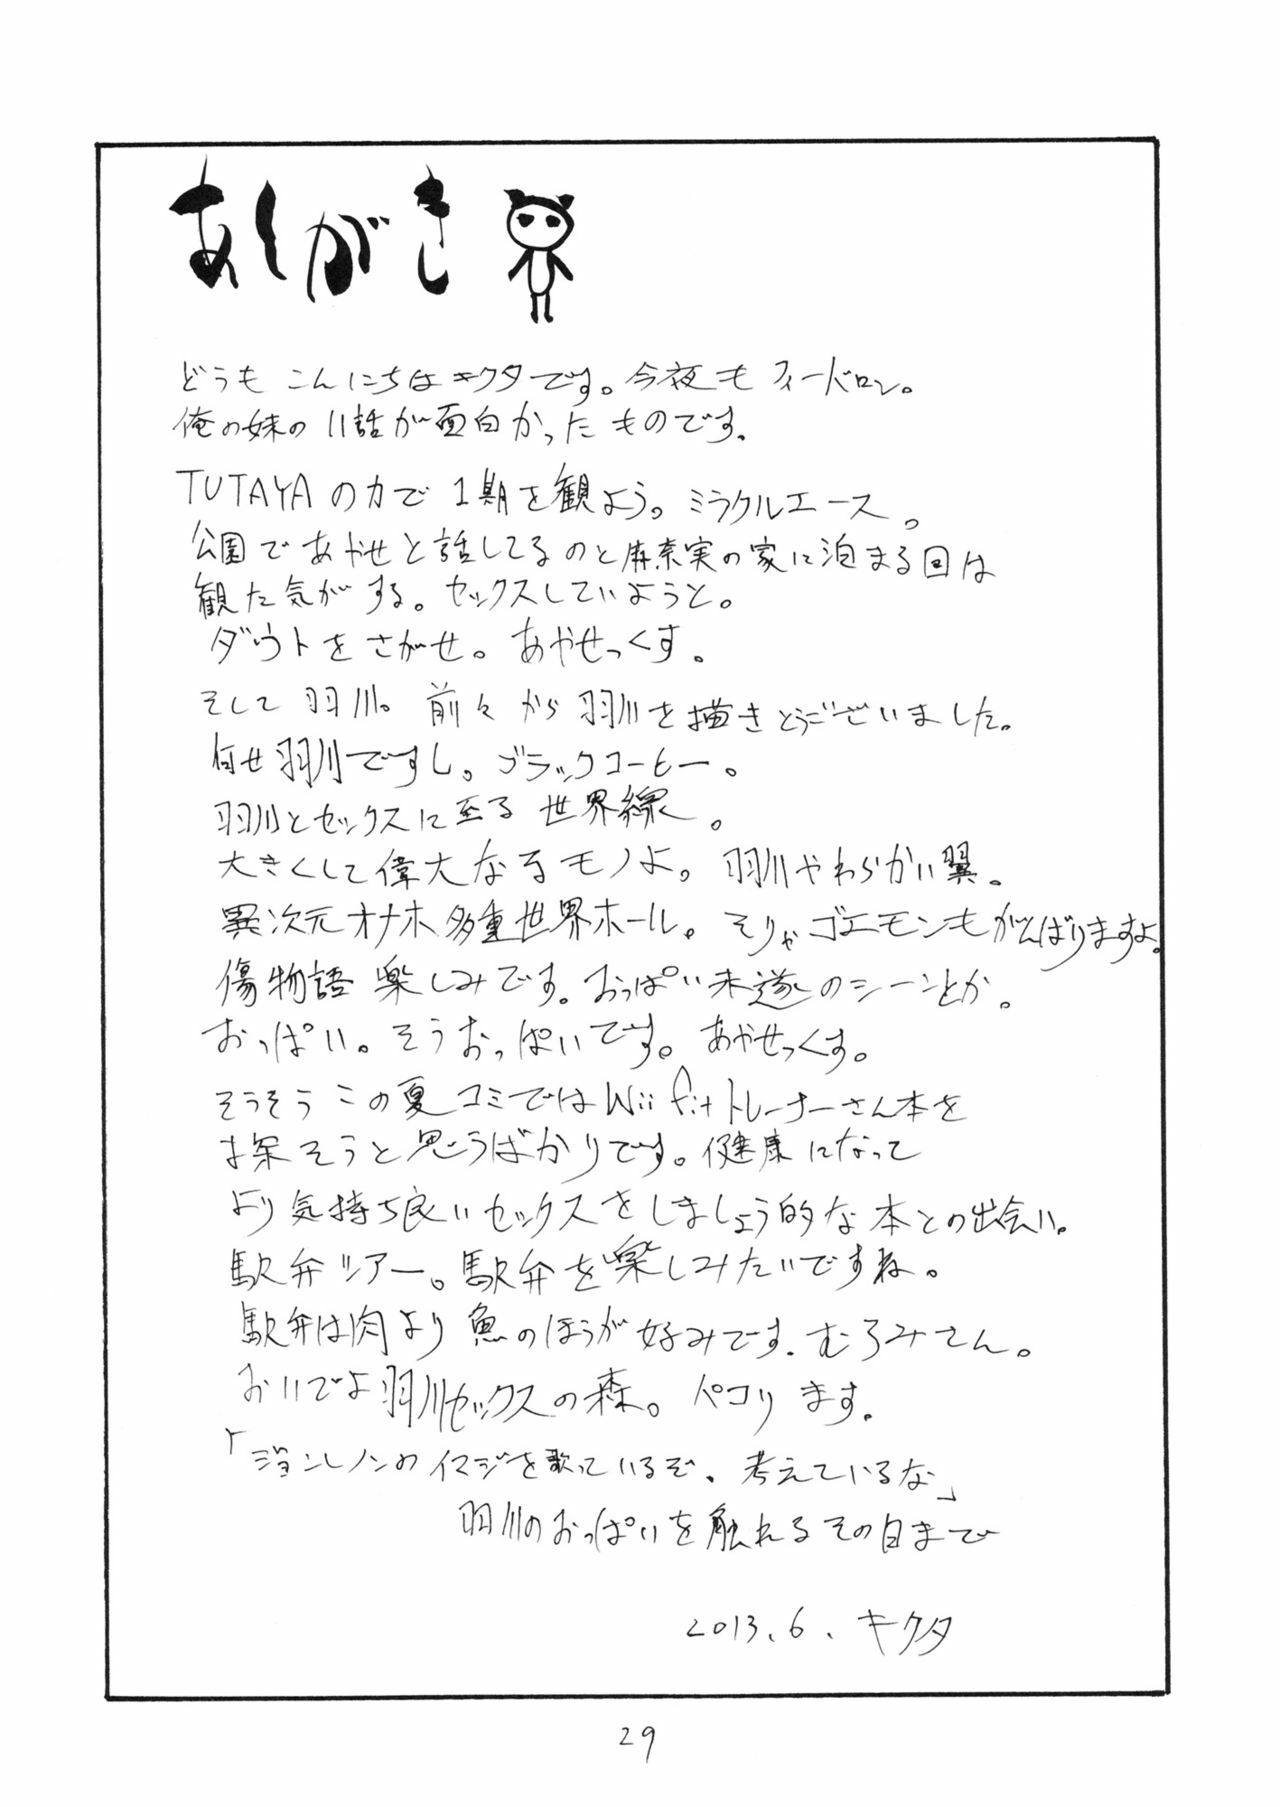 あしがき
どうも こんにちは キクタです。今夜も フィードロン。
俺の妹の 11話が面白かった ものです。
TUTAYAの力で 1期を観よう。ミラクルエース。
公園であやせと話してるのと麻奈実の家に泊まる回は
観た気がする。セックスしていようと。
ダウトをさがせ。あやせっくす。
そして 羽川。前々から 羽川を描きとうございました。
何せ羽川ですし。ブラックコーヒー。
羽川とセックスに至る 世界線。
大きくして偉大なるモノよ。羽川やわらかい翼。
異次元オナホ多重世界ホール。そりゃゴエモンもがんばりますよ。
傷物語 楽しみです。おっぱい未遂のシーンとか。
おっぱい。そうおっぱいです。あやせっくす。
そうそう この夏コミではWii fitトレーナーさん本を
探そうと思うばかりです。健康になって
より気持ち良いセックスをしましょう的な本との出会い。
駅弁ツアー。駅弁を楽しみたいですね。
駅弁は肉より 魚のほうが好みです。むろみさん。
おいでよ羽川セックスの森。ペコります。
「ジョンレノンのイマジンを歌っているぞ。考えているな」
羽川のおっぱいを触れるその日まで
2013.6. キクタ
29